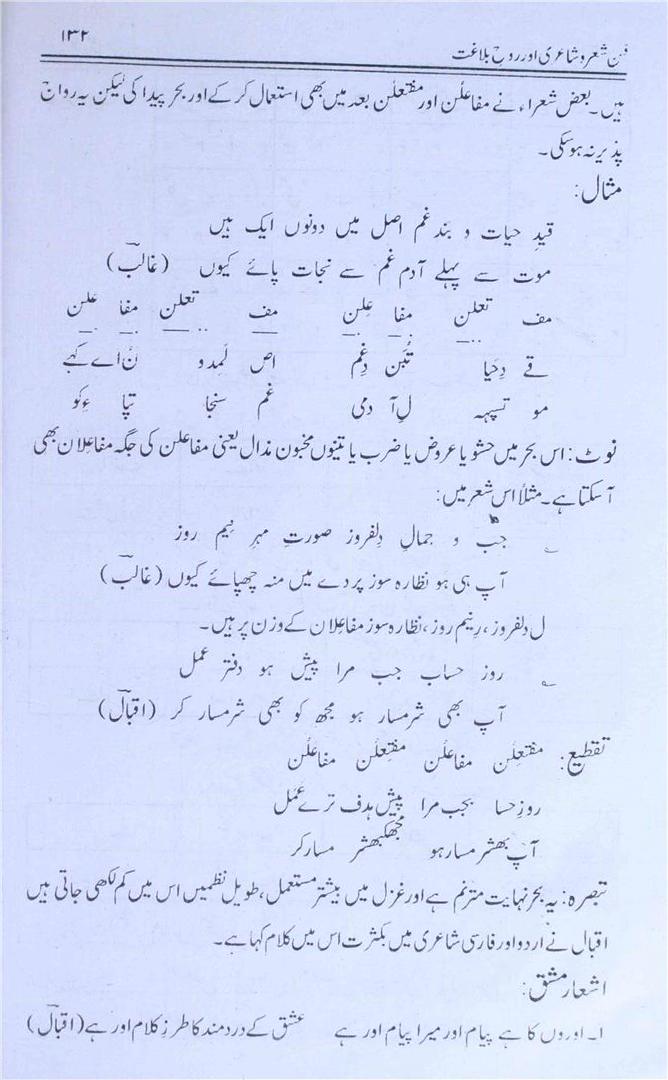 ۱۳۲
فن شعر و شاعری اور روح بلاغت
ہیں۔ بعض شعراء نے مفاعلن اور مفتعلن بعد میں بھی استعمال کر کے اور بحر پیدا کی لیکن یہ رواج
پذیر نہ ہو سکی۔
مثال:
قیدِ حیات و بندِ غم اصل میں دونوں ایک ہیں
موت سے پہلے آدم غم سے نجات پائے کیوں (غالبؔ)
مف تعلن مفا عِلن مف تعلن مفا علن
قے دِحَیا تُبَن دِغم اص لَمِدو نُ اے کہے
مو تسپہہ لِ آ دمی غم سنجا تپا ءِکو
نوٹ: اس بحر میں حشو یا عروض یا ضرب یا تینوں مخبون مذال یعنی مفاعلن کی جگہ مفاعلان بھی
آسکتا ہے۔ مثلاً اس شعر میں:
جب وہ جمالِ دِلفروز صورتِ مہرِ نیم روز
آپ ہی ہو نظارہ سوز پردے میں منہ چھپائے کیوں (غالبؔ)
لِ دلفروز، رِنیم روز، نظارہ سوز مفاعلان کے وزن پر ہیں۔
روز حساب جب مرا پیش ہو دفتر عمل
آپ بھی شرمسار ہو مجھ کو بھی شرمسار کر (اقبالؔ)
تقطیع: مفتعِلن مفاعلُن مفتعِلُن مفاعلُن
روزِحسا بجب مرا پیش ہدف ترے عمل
آپ بھشر مسارہو مجھکبھشر مسارکر
تبصرہ: یہ بحر نہایت مترنم ہے اور غزل میں بیشتر مستعمل، طویل نظمیں اس میں کم لکھی جاتی ہیں
اقبال نے اردو اور فارسی شاعری میں بکثرت اس میں کلام کہا ہے۔
اشعار مشق:
۱۔ اوروں کا ہے پیام اور میرا پیام اور ہے عشق کے دردمند کا طرزِ کلام اور ہے (اقبالؔ)